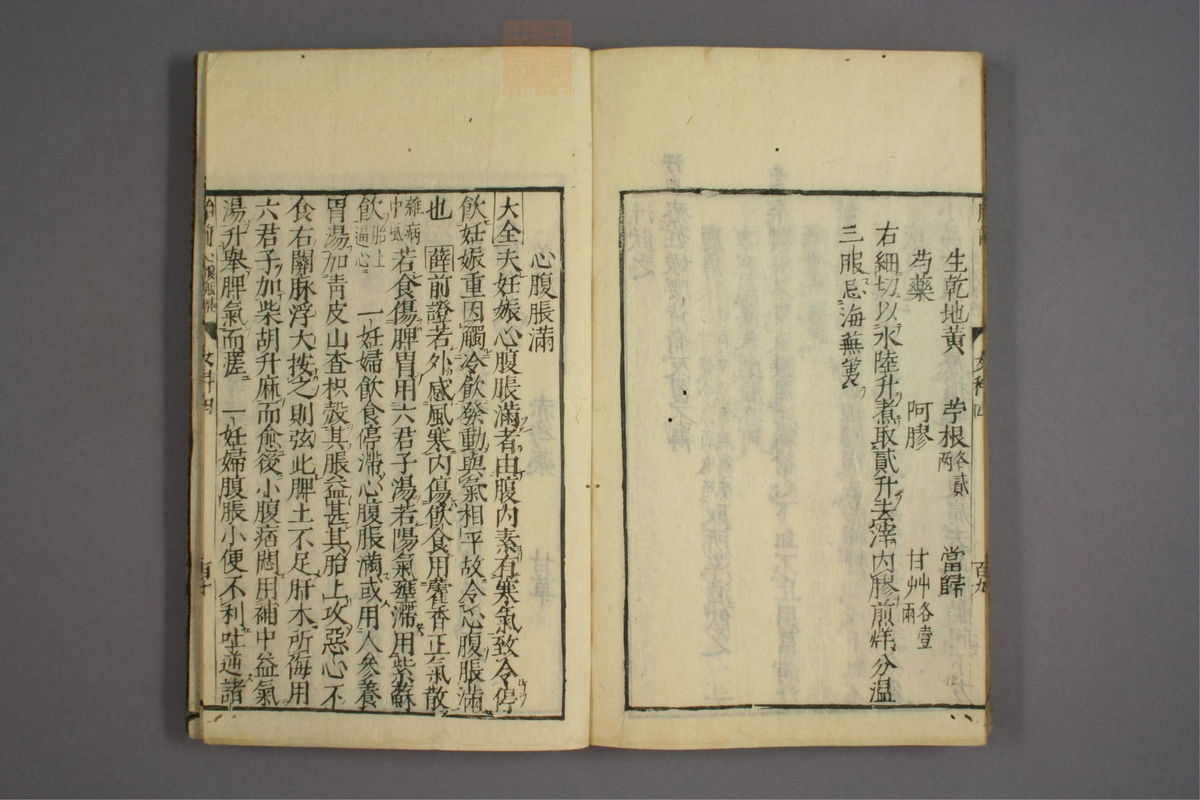 生乾地黃 苧根各貳兩 當歸
芍藥 阿膠 甘艸各壹兩
右細切以水陸升煮取貳升去滓内膠煎烊分温
三服忌海蕪荑
心腹脹滿
大全夫妊娠心腹脹滿者由腹内素有寒氣致令停
飲妊娠重因觸冷飲發動與氣相平故令心腹脹滿
也 薛前證若外感風寒内傷飲食用藿香正氣散
雜病中風若食傷脾胃用六君子湯若陽氣壅滯用紫蘇
飲胎上逼心 一妊婦飲食停滯心腹脹滿或用人參養
胃湯加青皮山查枳殼其脹益甚其胎上攻惡心不
食右關脉浮大按之則弦此脾土不足肝木所侮用
六君子加柴胡升麻而愈後小腹痞悶用補中益氣
湯升舉脾氣而瘥 一妊婦腹脹小便不利吐逆諸
女科四
百十